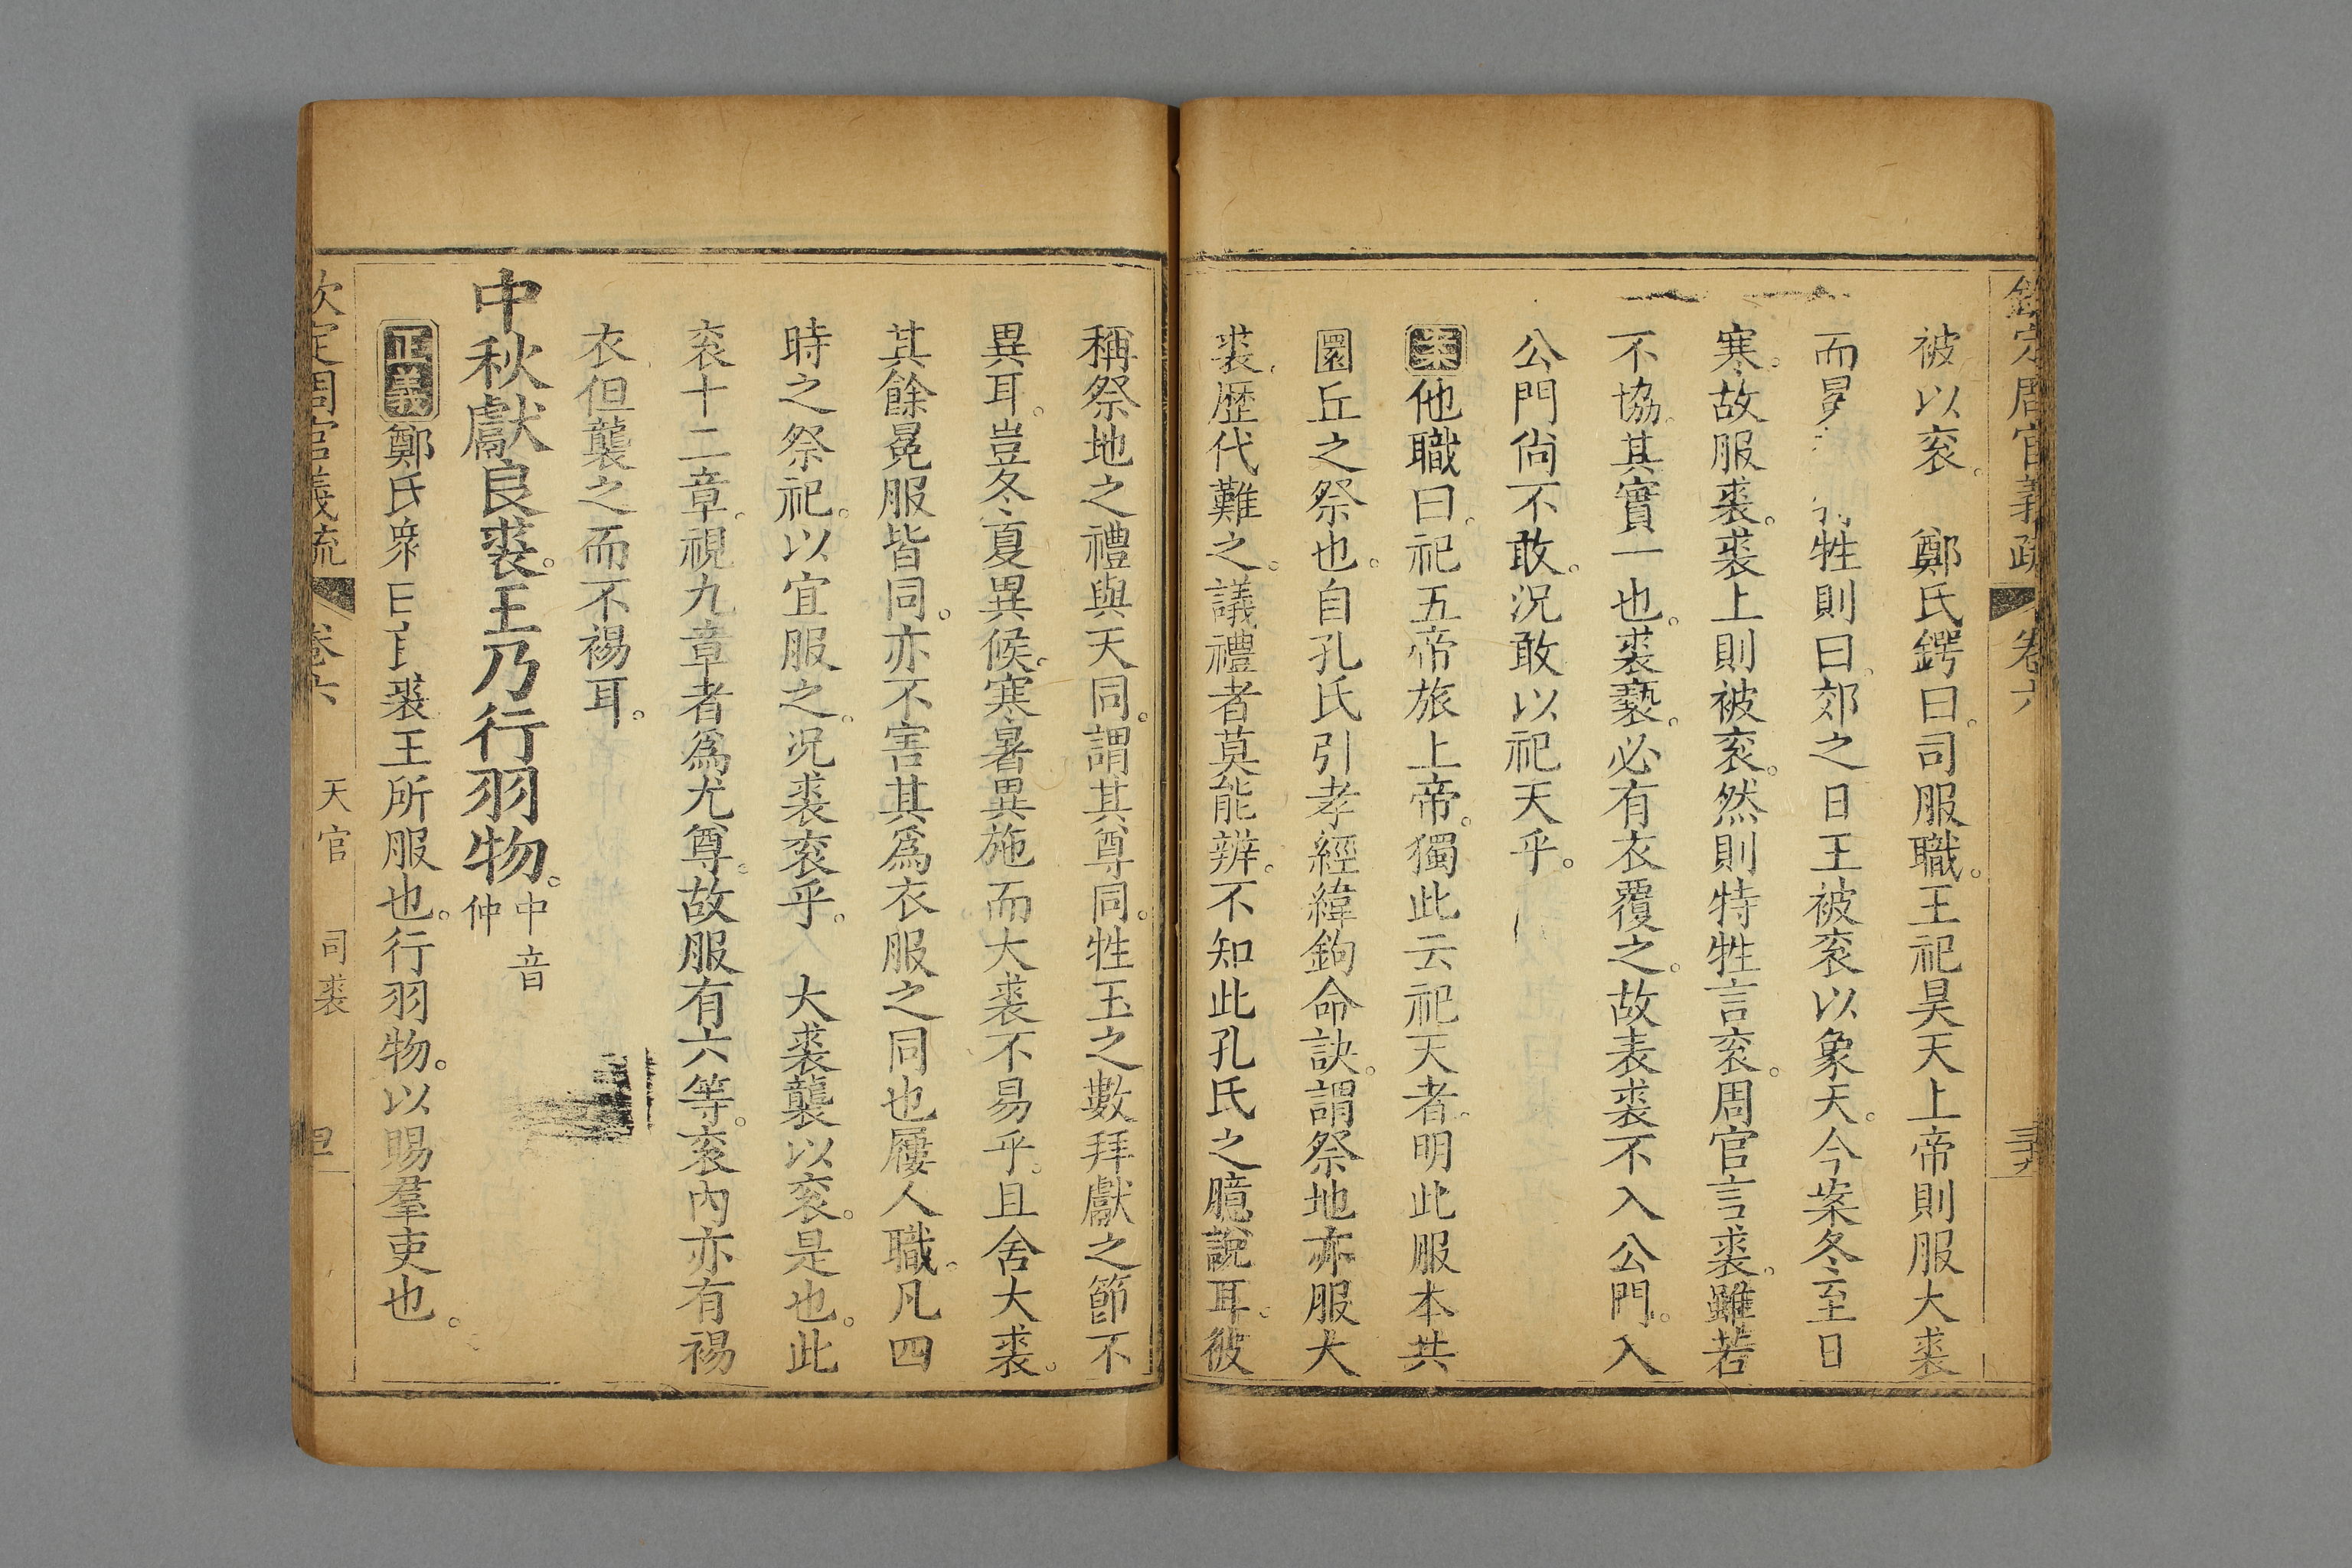 欽定周官義疏 卷六
被以衮。 鄭氏鍔曰。司服職。王祀昊天上帝則服大裘
而冕 牲則曰。郊之日王被衮以象天。今案冬至日
寒。故服裘。裘上則被衮。然則特牲言衮。周官言裘。雖若
不協。其實一也。裘褻。必有衣覆之。故表裘不入公門。入
公門尙不敢。況敢以祀天乎。
案他職曰。祀五帝旅上帝。獨此云祀天者。明此服本共
圜丘之祭也。自孔氏引孝經緯鉤命訣。謂祭地亦服大
裘。歴代難之。議禮者莫能辨。不知此孔氏之臆說耳。彼
稱祭地之禮與天同。謂其尊同。牲玉之數拜獻之節不
異耳。豈冬夏異候。寒暑異施。而大裘不易乎。且舍大裘。
其餘冕服皆同。亦不害其爲衣服之同也。屨人職。凡四
時之祭祀。以宜服之。况裘衮乎。 大裘襲以衮。是也。此
衮十二章。視九章者爲尤尊。故服有六等。衮內亦有裼
衣。但襲之而不裼耳。
中秋獻良裘。王乃行羽物。中音仲
正義鄭氏衆曰 裘王所服也。行羽物。以賜羣吏也。
欽定周官義疏 卷六 天官 司裘